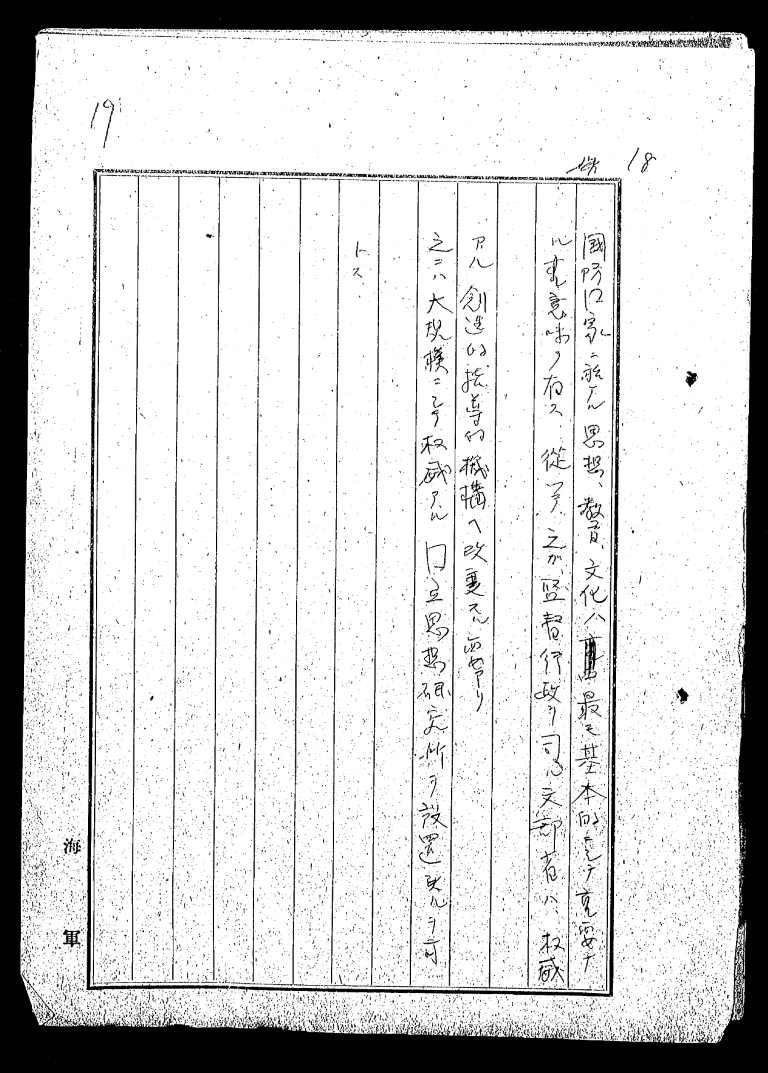 19
18
國防国家ニ於ケル思想、教育、文化ハ最モ基本的ニシテ重要ナ
ル意味ヲ有ス 從ツテ之ガ監督行政ヲ司ル文部省ハ、权威
アル創造的指導的機構ヘ改変スル要アリ
之ニハ大規模ニシテ权威アル国立思想研究所ヲ設置スルヲ可
トス.
海軍